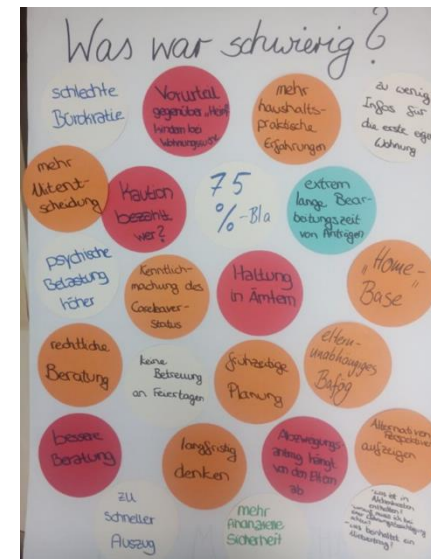 Was war schwierig?
schlechte
Bürokratie
Vorurteil
gegenüber "Heim"
kindern bei
mehr
haushalts-
praktische
Erfahrungen
zu wenig
Infos für
die erste eigene
Wohnung
mehr
Mitent-
scheidung
Kaution
bezahlt
wer?
75
%-Bla
extrem
lange Bear-
beitungszeit
von Anträgen
psychische
Belastung
höher
Kenntlich-
machung des
Careleaver-
Status
Haltung
in Ämtern
"Home-
Base"
rechtliche
Beratung
keine
Betreuung
an Feiertagen
frühzeitige
Planung
eltern-
unabhängiges
Bafög
bessere
Beratung
langfristig
denken
Abzweigungs-
antrag hängt
von den Eltern
ab
Alternativen
Perspektiven
aufzeigen
zu
schneller
Auszug
mehr
finanzielle
Sicherheit
- was ist in
Nebenkosten
enthalten?